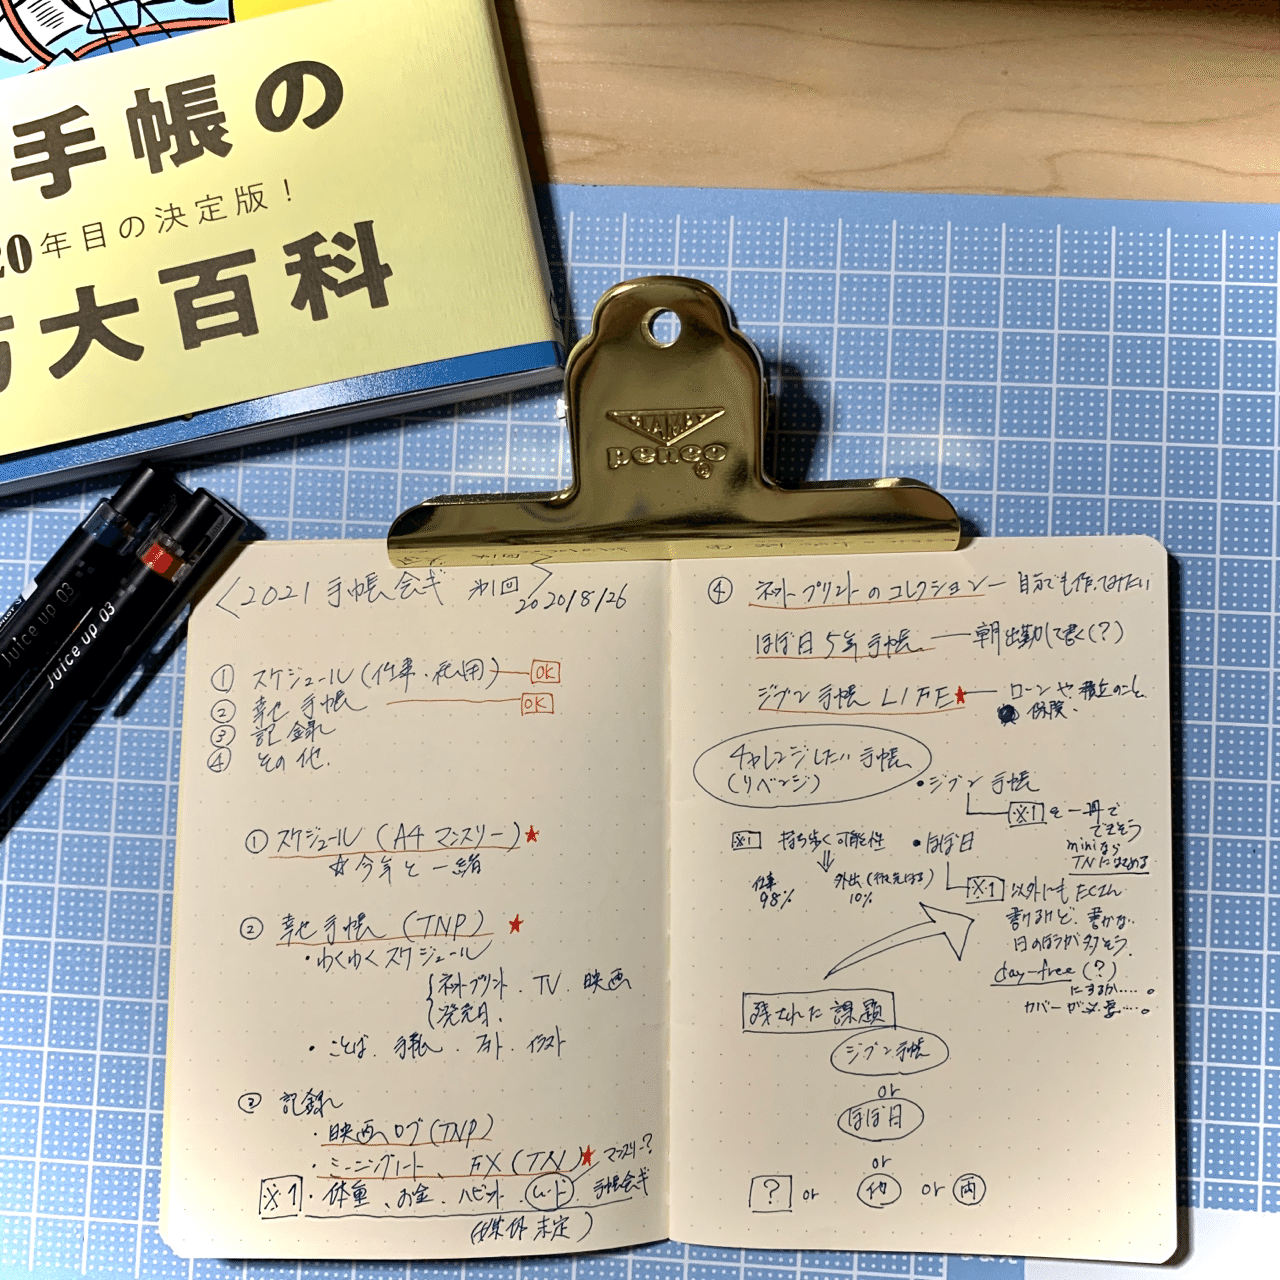 手帳の
20年目の決定版!
方大百科
Juice up 03
Juice up 03
penco
<2021 手帳会ギ 第1回
2020/8/26
① スケジュール(仕事・私用) OK
② 幸せ手帳 OK
③ 記録
④ その他.
① スケジュール (A4 マンスリー) ★
☆今年と一緒
② 幸せ手帳 (TNP) ★
・わくわくスケジュール
ネットプリント . TV . 映画
発売日.
・ことば . 手帳 . フォト . イラスト
③ 記録
・映画ログ(TNP)
・ミーニングノート、FX(TN)★
マンスリー?
※1・体重、お金、ハビット、ムード 手帳会ギ
(媒体未定)
④ ネットプリントのコレクション—自分でも作ってみたい
ほぼ日5年手帳 — 朝出勤して書く(?)
ジブン手帳 LIFE★ — ローンや積立のこと
保険.
チャレンジしたい手帳
(リベンジ)
・ジブン手帳
※1を一冊で
できそう
miniなら
TNにはさめる
※1 持ち歩く可能性
仕事
98%
外出
10%
・ほぼ日
※1 以外にもたくさん
書けるけど、書かない
日のほうが多そう.
day-free(?)
にするか....。
カバーが必要....。
残された課題
ジブン手帳
or
ほぼ日
or
? or 他 or 両